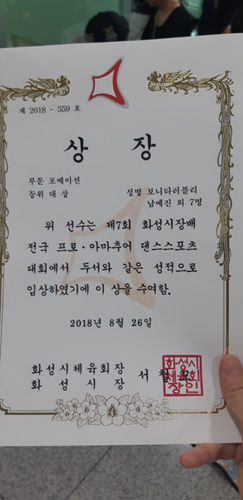 제 2018 - 559 호
상 장
부문 포메이션
등위 대상
성명 보니타러블리
남예진 외 7명
위 선수는 제7회 화성시장배
전국 프로·아마추어 댄스스포츠
대회에서 두서와 같은 성적으로
입상하였기에 이 상을 수여함.
2018년 8월 26일
화성시체육회장
화 성 시 장 서